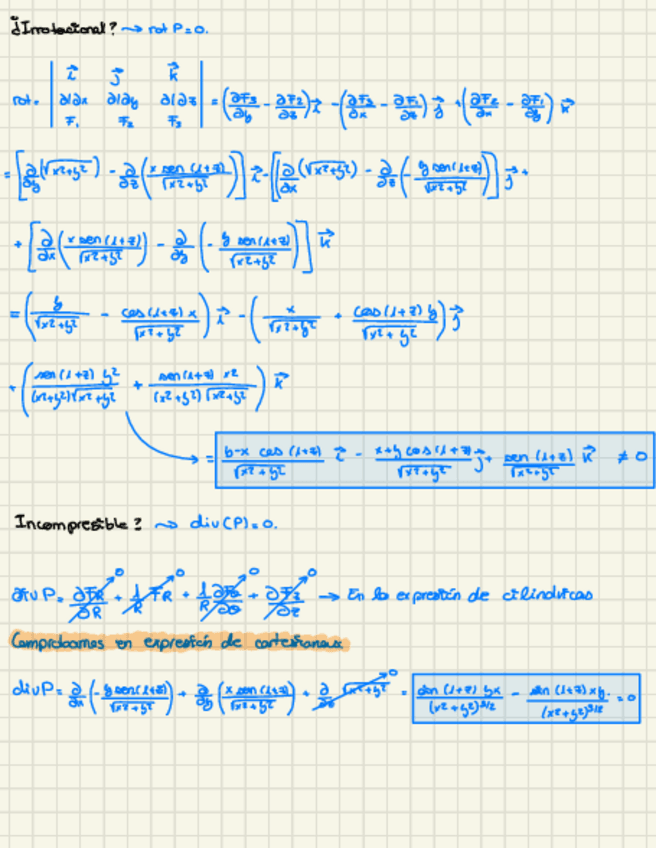 ¿Irrotacional? → rot P=0.
rot. = | i⃗ j⃗ k⃗ |
| ∂/∂x ∂/∂y ∂/∂z | = (∂F₃/∂y - ∂F₂/∂z) i⃗ - (∂F₃/∂x - ∂F₁/∂z) j⃗ + (∂F₂/∂x - ∂F₁/∂y) k⃗
| F₁ F₂ F₃ |
= [∂/∂y (√(x²+y²)) - ∂/∂z (x sen(1+z)/√(x²+y²))] i⃗ - [∂/∂x (√(x²+y²)) - ∂/∂z (- y sen(1+z)/√(x²+y²))] j⃗ +
+ [∂/∂x (x sen(1+z)/√(x²+y²)) - ∂/∂y (- y sen(1+z)/√(x²+y²))] k⃗
= (y/√(x²+y²) - cos(1+z) x/√(x²+y²)) i⃗ - (x/√(x²+y²) + cos(1+z) y/√(x²+y²)) j⃗
+ (sen(1+z) y²/(x²+y²)√(x²+y²) + sen(1+z) x²/(x²+y²)√(x²+y²)) k⃗
= y-x cos(1+z)/√(x²+y²) i⃗ - x+y cos(1+z)/√(x²+y²) j⃗ + sen(1+z)/√(x²+y²) k⃗ ≠ 0
Incompresible? → div(P)=0.
div P = ∂F_R/∂R + 1/R F_R + 1/R ∂Fθ/∂θ + ∂F_z/∂z → En la expresión de cilíndricas
0 0 0 0
Comprobamos en expresión de cartesianas:
div P = ∂/∂x (- y sen(1+z)/√(x²+y²)) + ∂/∂y (x sen(1+z)/√(x²+y²)) + ∂/∂z √(x²+y²) → 0 = sen(1+z) yx/(x²+y²)^3/2 - sen(1+z) xy/(x²+y²)^3/2 = 0